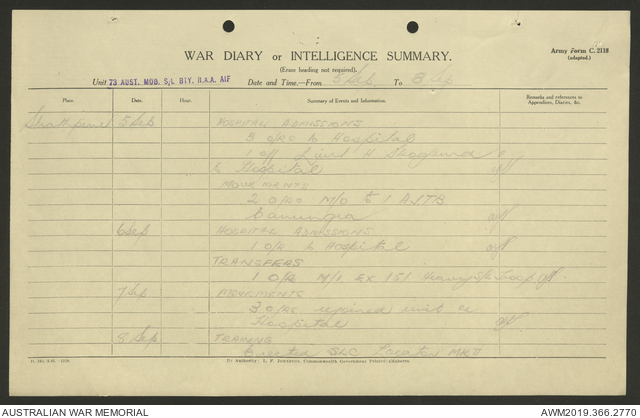 Army Form C. 2118
(adapted.)
WAR DIARY or INTELLIGENCE SUMMARY.
(Erase heading not required).
Unit 73 AUST. MOB. S/L BTY. R.A.A. AIF Date and Time.—From 5 Sep. To 8 Sep
Place. Date. Hour. Summary of Events and Information. Remarks and references to Appendices, Diaries, &c.
5 Sep HOSPITAL ADMISSIONS
3 O/RS to Hospital
1 Off Lieut H
to Hospital
MOVEMENTS
2 O/RS M/O to 1 AJTB
Canungra
6 Sep HOSPITAL ADMISSIONS
1 O/R to Hospital
TRANSFERS
1 O/R M/I Ex 151 Heavy S/L Troop
7 Sep MOVEMENTS
3 O/RS rejoined unit ex
Hospital
8 Sep TRAINING
SLC MK II
By Authority: L. F. Johnston, Commonwealth Government Printer, Canberra.
AUSTRALIAN WAR MEMORIAL
AWM2019.366.2770